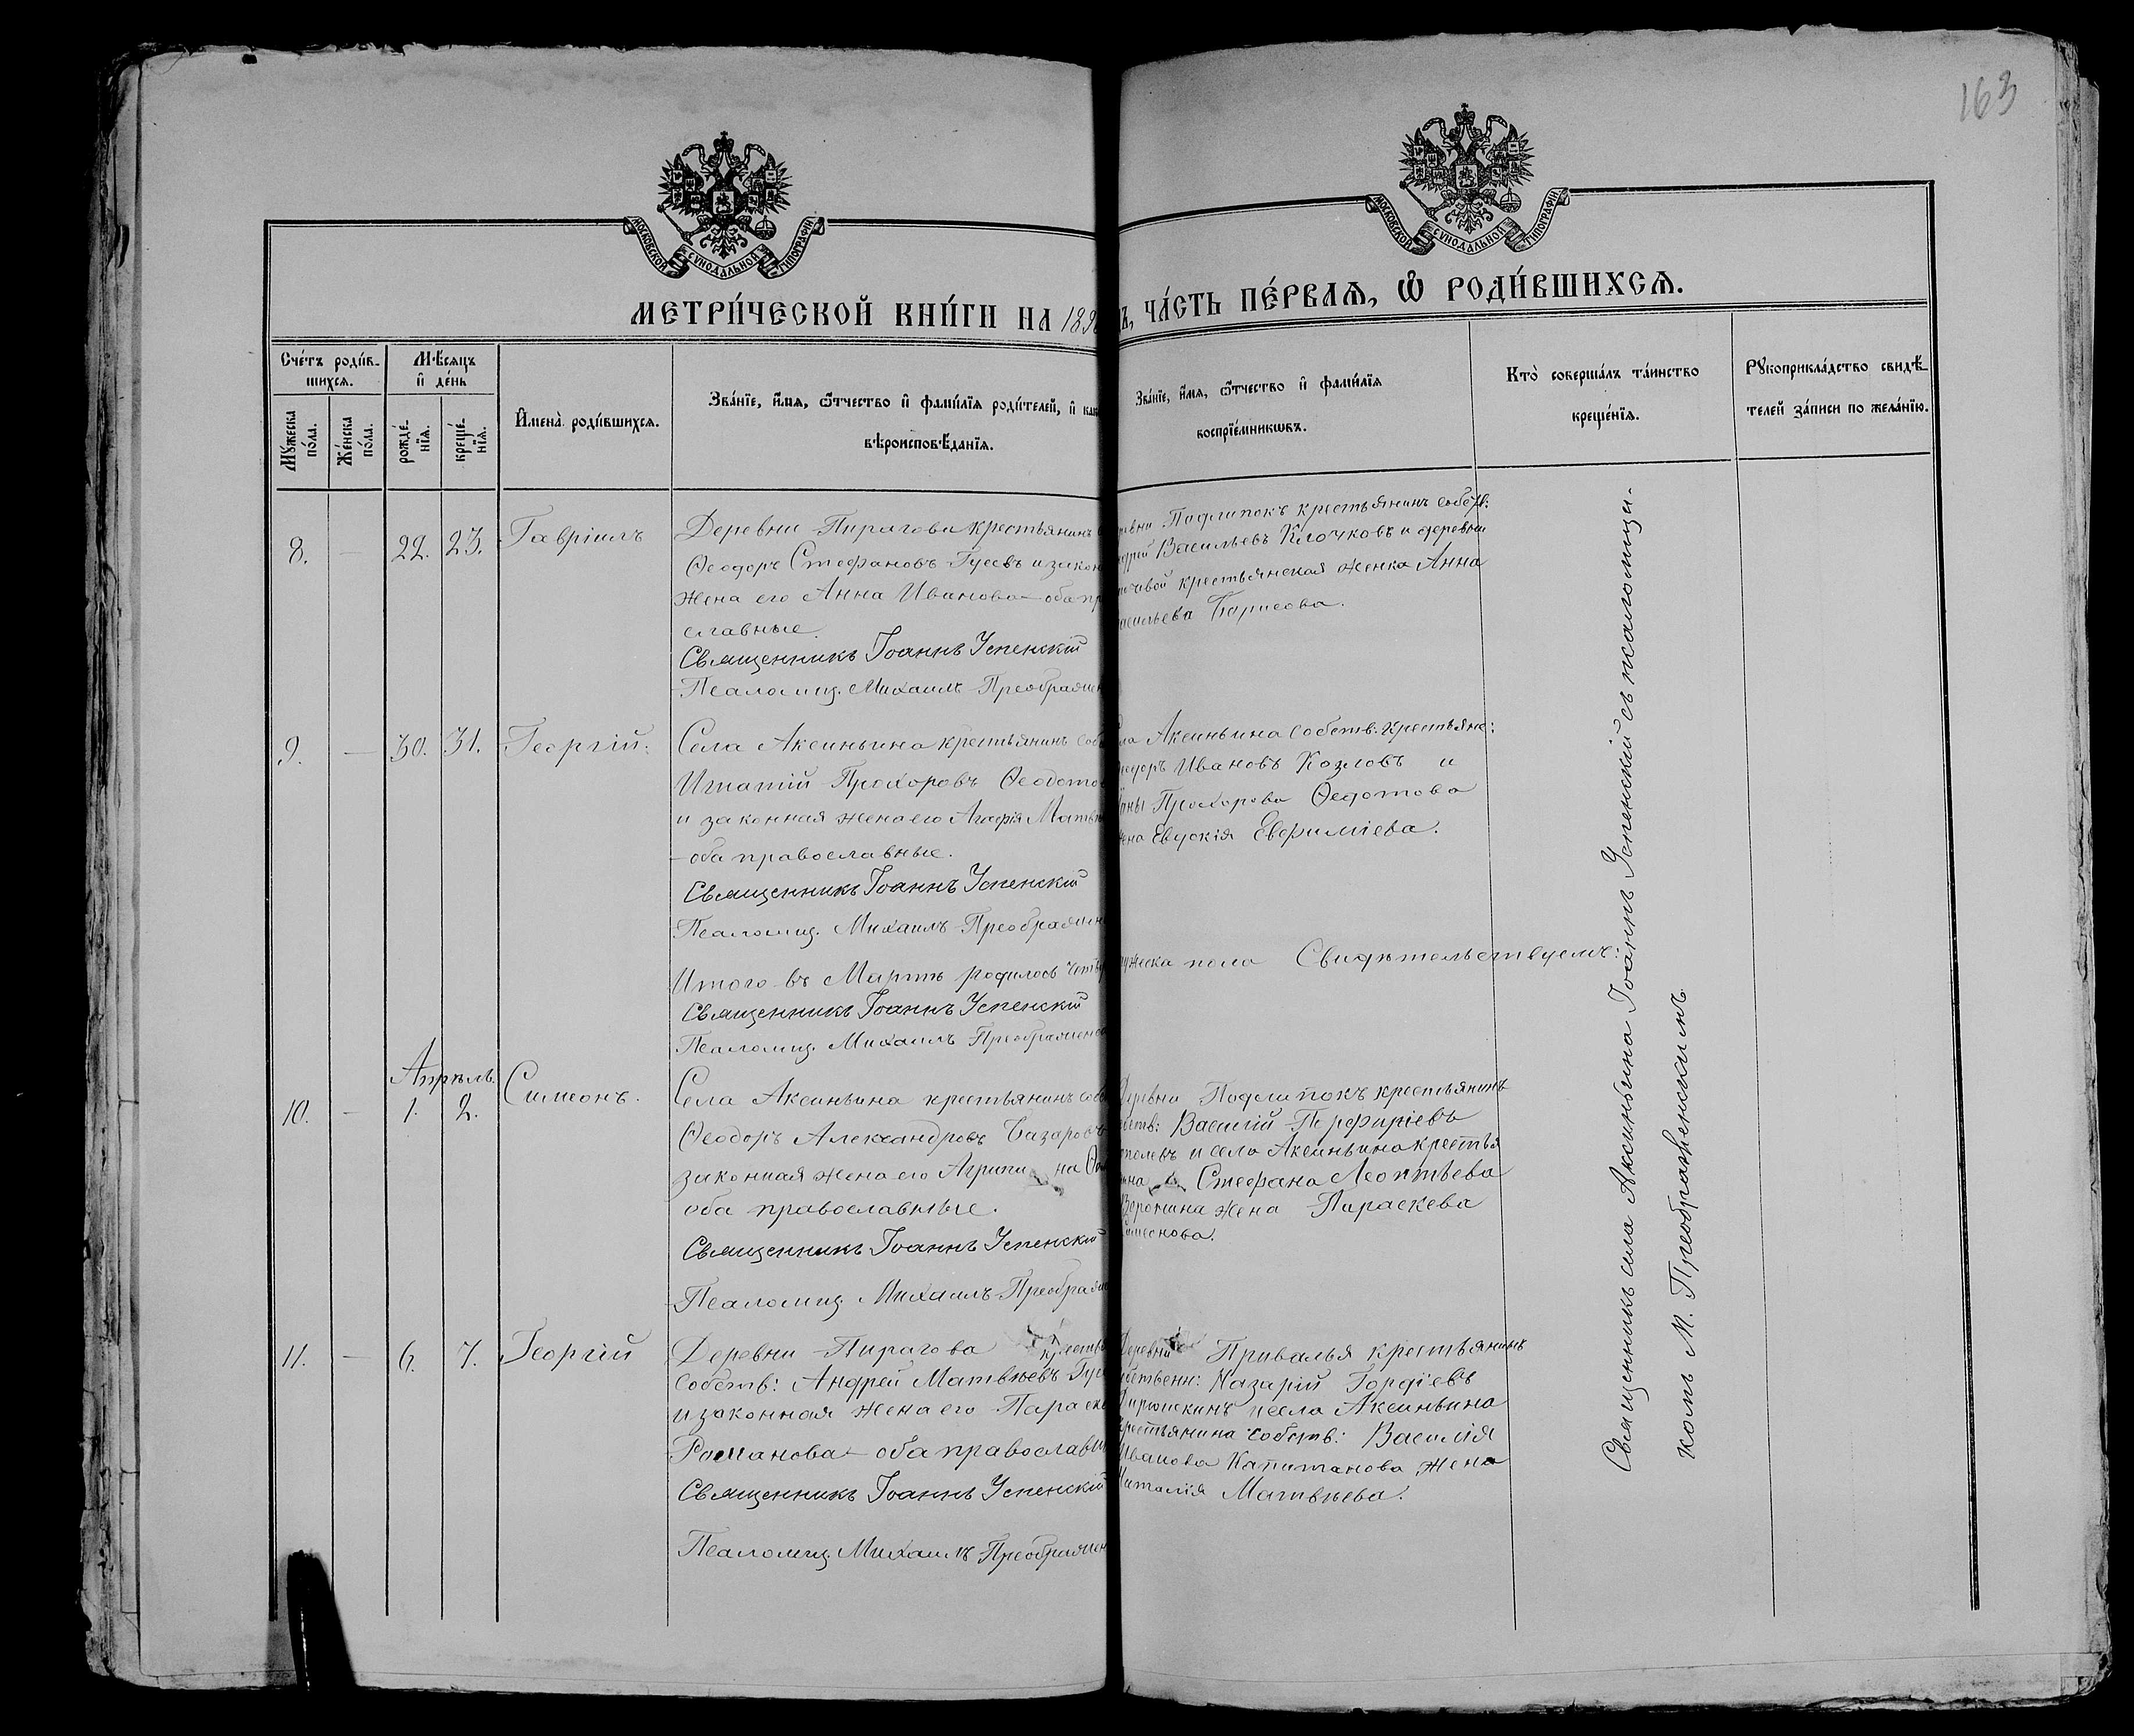 163
МОСКОВСКОЙ СѴНОДАЛЬНОЙ ТИПОГРАФИИ
МОСКОВСКОЙ СѴНОДАЛЬНОЙ ТИПОГРАФИИ
МЕТРИ́ЧЕСКОЙ КНИ́ГИ НА 189
ЧА́СТЬ ПЕ́РВАѦ, Ѽ РОДИ́ВШИХСѦ.
Сче́тъ роди́в-
шихсѧ.
Мѣ́сѧцъ
и҆ де́нь
Мꙋ́жеска по́ла.
Же́нска по́ла.
рожде́-
нїѧ.
креще́-
нїѧ.
И҆мена̀ роди́вшихсѧ.
Зва́нїе, и҆́мѧ, ѻ҆́тчество и҆ фамн́лїѧ роди́телей, и҆
вѣроисповѣ́данїѧ.
Зва́нїе, и҆́мѧ, ѻ҆́тчество и҆ фами́лїѧ
воспрїе́мникѡвъ.
Кто̀ соверша́лъ та́инство
креще́нїѧ.
Рꙋкоприкла́дство свидѣ́-
телей за́писи по жела́нїю.
8. — 22. 23. Гавріилъ
Деревни Пирагова крестьянинъ
Ѳеодоръ Стефановъ Гусевъ и закон
жена его Анна Иванова – оба пр
славные.
Священникъ Іоаннъ Успенскій
Псаломщ. Михаилъ Преображен
Подлипокъ крестьянинъ собств:
Васильевъ Клочковъ и деревни
крестьянская женка Анна
Борисова.
9. — 30. 31. Георгій.
Села Аксиньина крестьянинъ соб
Игнатій Прохоровъ Ѳеодотов
и законная жена его Агафія Матвѣ
– оба православные.
Священникъ Іоаннъ Успенскій
Псаломщ. Михаилъ Преображен
Аксиньина собств: крестьяне:
Ивановъ Козловъ и
Прохорова Ѳедотова
жена Евдокія Евфиміева.
Итого въ Мартѣ родилось четыр
Священникъ Іоаннъ Успенскій
Псаломщ. Михаилъ Преображенс
мужеска пола Свидѣтельствуемъ:
Апрѣль.
10. — 1. 2. Симеонъ.
Села Аксиньина крестьянинъ соб
Ѳеодоръ Александровъ Базаровъ
законная жена его Агрипина
оба православные.
Священникъ Іоаннъ Успенскій
Псаломщ. Михаилъ Преображ
Деревни Подлипокъ крестьянинъ
Василій Перфиріевъ
и села Аксиньина крестья
Стефана Леонтьева
Воронина жена Параскева
11. — 6. 7. Георгій
Деревни Пирагова кресть
собств: Андрей Матвѣевъ Гус
и законная жена его Параске
Романова – оба православн
Священникъ Іоаннъ Успенскій
Псаломщ. Михаилъ Преображен
Деревни Привалья крестьянинъ
Назарій Гордіевъ
и села Аксиньина
крестьянина собств: Василія
Иванова Капитанова жена
Наталія Матвѣева.
Священникъ села Аксиньина Іоаннъ Успенскій съ псаломщи-
комъ М. Преображенскимъ